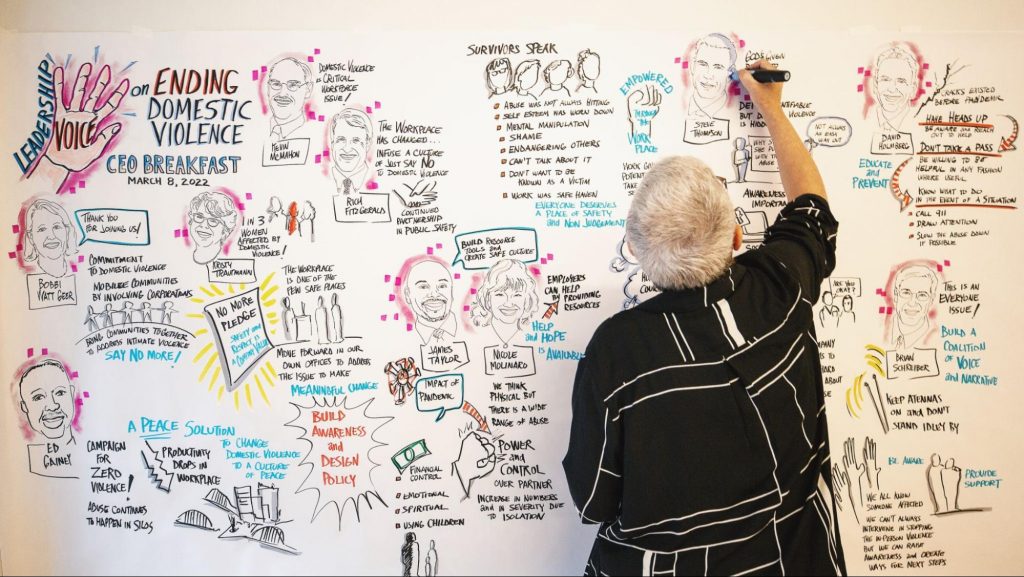 LEADERSHIP
VOICE
on ENDING
DOMESTIC
VIOLENCE
CEO BREAKFAST
MARCH 8, 2022
KEVIN
McMAHON
DOMESTIC VIOLENCE
is CRITICAL
WORKFORCE
ISSUE!
RICH
FITZGERALD
THE WORKPLACE
HAS CHANGED...
INFUSE A CULTURE
OF JUST SAY NO
TO DOMESTIC VIOLENCE
CONTINUED
PARTNERSHIP
IN PUBLIC SAFETY
BOBBI
WATT GEER
THANK YOU
FOR JOINING US!
COMMITMENT
TO DOMESTIC VIOLENCE
MOBILIZE COMMUNITIES
BY INVOLVING CORPORATIONS
BRING COMMUNITIES TOGETHER
TO ADDRESS INTIMATE VIOLENCE
SAY NO MORE!
KRISTY TRAUTMANN
1 IN 3
WOMEN
AFFECTED BY
DOMESTIC
VIOLENCE!
NO MORE
PLEDGE
SAFETY AND
RESPECT IS
A VALUE
THE WORKPLACE
IS ONE OF THE
FEW SAFE PLACES
MOVE FORWARD IN OUR
OWN OFFICES TO ADDRESS
THE ISSUE TO MAKE
MEANINGFUL CHANGE
BUILD
AWARENESS
and
DESIGN
POLICY
ED
GAINEY
CAMPAIGN
FOR
ZERO
VIOLENCE!
ABUSE CONTINUES
TO HAPPEN IN SILOS
A PEACE SOLUTION
PRODUCTIVITY
DROPS IN
WORKPLACE
TO CHANGE
DOMESTIC VIOLENCE
TO A CULTURE
OF PEACE
SURVIVORS SPEAK
ABUSE WAS NOT ALWAYS HITTING
SELF ESTEEM WAS WORN DOWN
MENTAL MANIPULATION
SHAME
ENDANGERING OTHERS
CAN'T TALK ABOUT IT
DON'T WANT TO BE
KNOWN AS A VICTIM
WORK WAS SAFE HAVEN
EVERYONE DESERVES
A PLACE OF SAFETY
AND NON JUDGEMENT
BUILD RESOURCE
TOOLS and
CREATE SAFE CULTURE
JAMES
TAYLOR
NICOLE
MOLINARO
EMPLOYERS
CAN HELP
BY PROVIDING
RESOURCES
HELP AND
HOPE
IS AVAILABLE
IMPACT OF
PANDEMIC
WE THINK
PHYSICAL BUT
THERE IS A WIDE
RANGE OF ABUSE
FINANCIAL
CONTROL
EMOTIONAL
SPIRITUAL
USING CHILDREN
POWER
and
CONTROL
OVER PARTNER
INCREASE IN NUMBERS
AND IN SEVERITY DUE
TO ISOLATION
EMPOWERED
THROUGH
THE
WORK
PLACE
STEVE
THOMPSON
AWARENESS
IMPORTANT
NOT ALWAYS
AN EASY
WAY OUT
ARE YOU
OKAY?
DAVID
HOLMBERG
CRACKS EXISTED
BEFORE PANDEMIC
HAVE HEADS UP
BE AWARE AND REACH
OUT TO HELP
DON'T TAKE A PASS
BE WILLING TO BE
HELPFUL IN ANY FASHION
WHERE USEFUL
KNOW WHAT TO DO
IN THE EVENT OF A SITUATION
CALL 911
DRAW ATTENTION
SLOW THE ABUSE DOWN
IF POSSIBLE
EDUCATE
AND
PREVENT
BRIAN
SCHREIBER
THIS IS AN
EVERYONE
ISSUE!
BUILD A
COALITION
OF VOICE
AND NARRATIVE
KEEP ATENNAS
ON AND DON'T
STAND IDLEY BY
BE AWARE
PROVIDE
SUPPORT
WE ALL KNOW
SOMEONE AFFECTED
WE CAN'T ALWAYS
INTERVENE IN STOPPING
THE IN-PERSON VIOLENCE
BUT WE CAN RAISE
AWARENESS AND CREATE
WAYS FOR NEXT STEPS